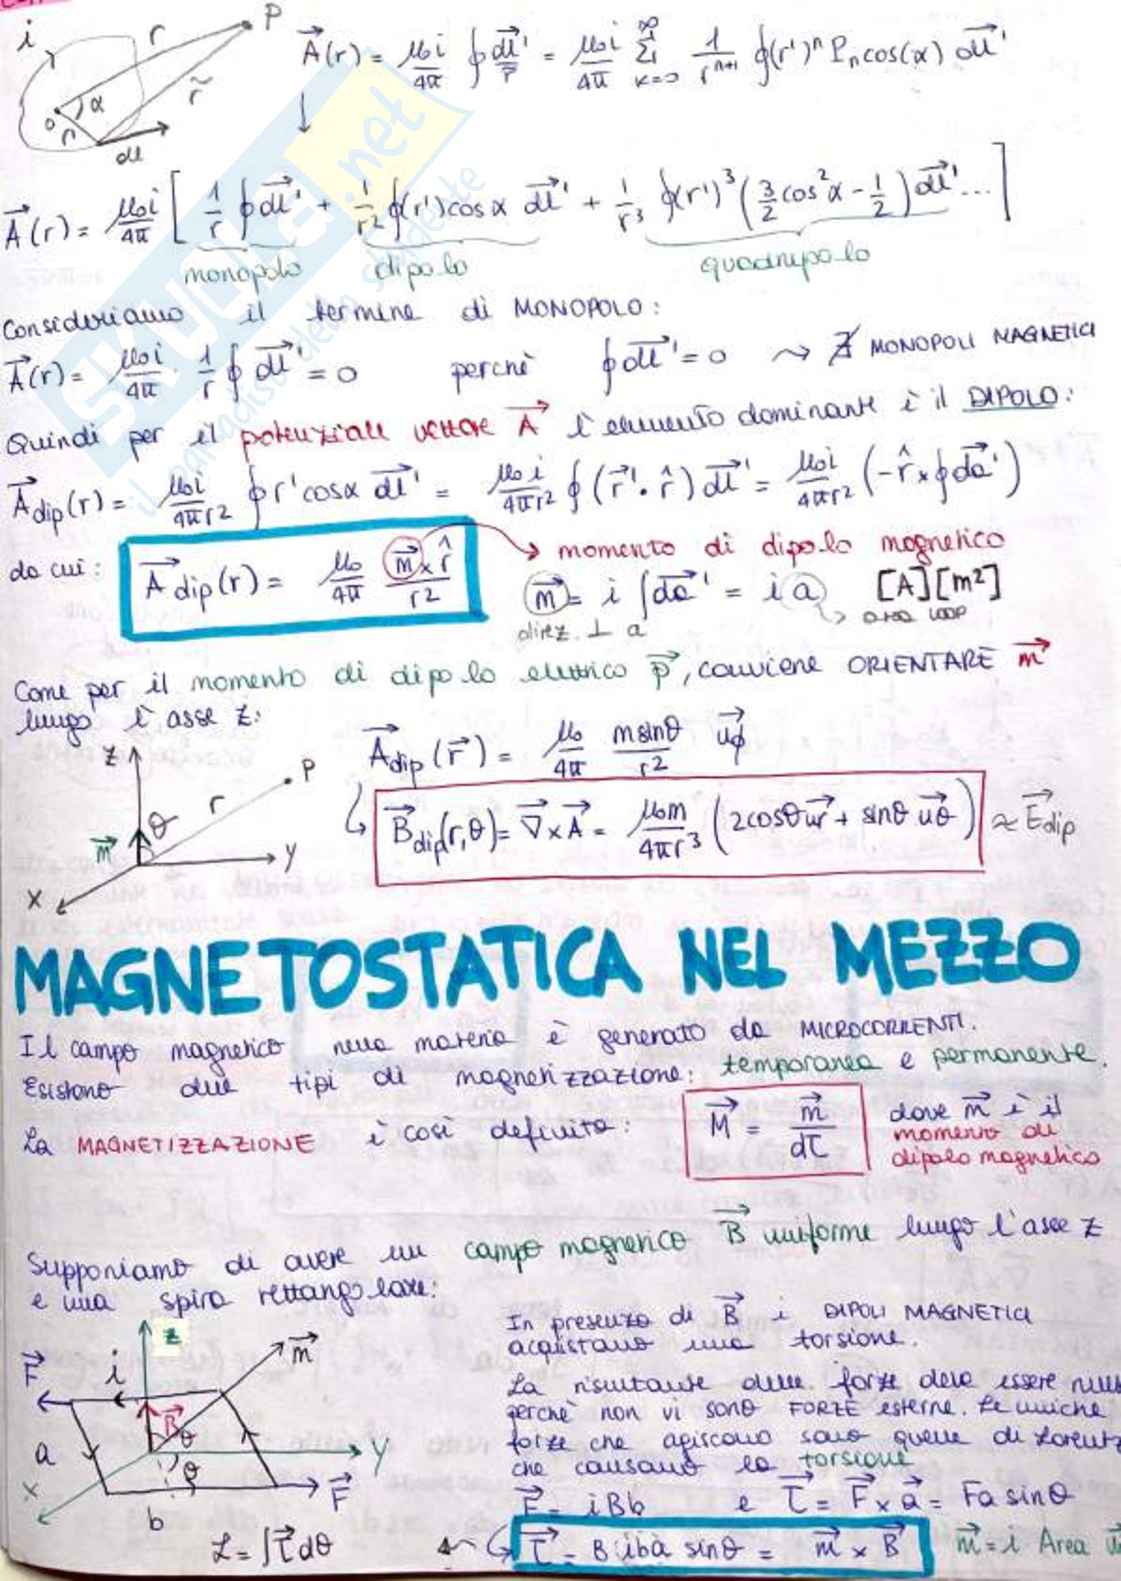 i r P r̃ α o r' dl
A⃗(r) = μ₀i/4π ∮ dl⃗'/r̃ = μ₀i/4π Σ_{k=0}^{∞} 1/r^{n+1} ∮(r')ⁿ Pₙcos(α) dl⃗'
A⃗(r) = μ₀i/4π [ 1/r ∮dl⃗' + 1/r² ∮(r')cosα dl⃗' + 1/r³ ∮(r')³ (3/2 cos²α - 1/2) dl⃗' ... ]
monopolo dipolo quadrupolo
Consideriamo il termine di MONOPOLO:
A⃗(r) = μ₀i/4π · 1/r ∮ dl⃗' = 0 perchè ∮ dl⃗' = 0 ⇝ ∄ MONOPOLI MAGNETICI
Quindi per il potenziale vettore A⃗ l'elemento dominante è il DIPOLO:
A⃗dip(r) = μ₀i/4πr² ∮ r'cosα dl⃗' = μ₀i/4πr² ∮ (r⃗'· r̂) dl⃗' = μ₀i/4πr² (- r̂ × ∮da⃗')
da cui: A⃗dip(r) = μ₀/4π m⃗ × r̂/r² → momento di dipolo magnetico
m⃗ = i ∫da⃗' = i a [A][m²]
direz. ⊥ a area loop
Come per il momento di dipolo elettrico p⃗, conviene ORIENTARE m⃗
lungo l'asse z:
z P r θ m⃗ y x
A⃗dip(r⃗) = μ₀/4π m sinθ/r² u⃗ϕ
B⃗dip(r,θ) = ∇⃗ × A⃗ = μ₀m/4πr³ (2cosθ u⃗r + sinθ u⃗θ) ≈ E⃗dip
MAGNETOSTATICA NEL MEZZO
Il campo magnetico nella materia è generato da MICROCORRENTI.
Esistono due tipi di magnetizzazione: temporanea e permanente.
La MAGNETIZZAZIONE è così definita: M⃗ = m⃗/dτ dove m⃗ è il
momento di
dipolo magnetico
Supponiamo di avere un campo magnetico B⃗ uniforme lungo l'asse z
e una spira rettangolare:
z F⃗ i m⃗ B⃗ θ a y x θ F⃗ b
In presenza di B⃗ i DIPOLI MAGNETICI
acquistano una torsione.
La risultante delle forze deve essere
perchè non vi sono FORZE esterne. Le uniche
forze che agiscono sono quelle di Lorentz
che causano la torsione
F⃗ = iBb e τ⃗ = F⃗ × a⃗ = Fa sinθ
L = ∫τ⃗dθ
τ⃗ = B iba sinθ = m⃗ × B⃗ m⃗ = i Area
SKUOLA.net
il paradiso dello studente